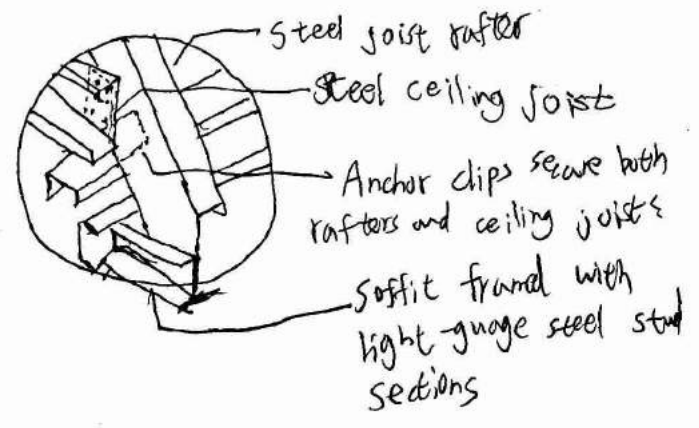 Steel joist rafter
Steel ceiling joist
Anchor clips secure both
rafters and ceiling joists
Soffit framed with
light-guage steel stud
sections